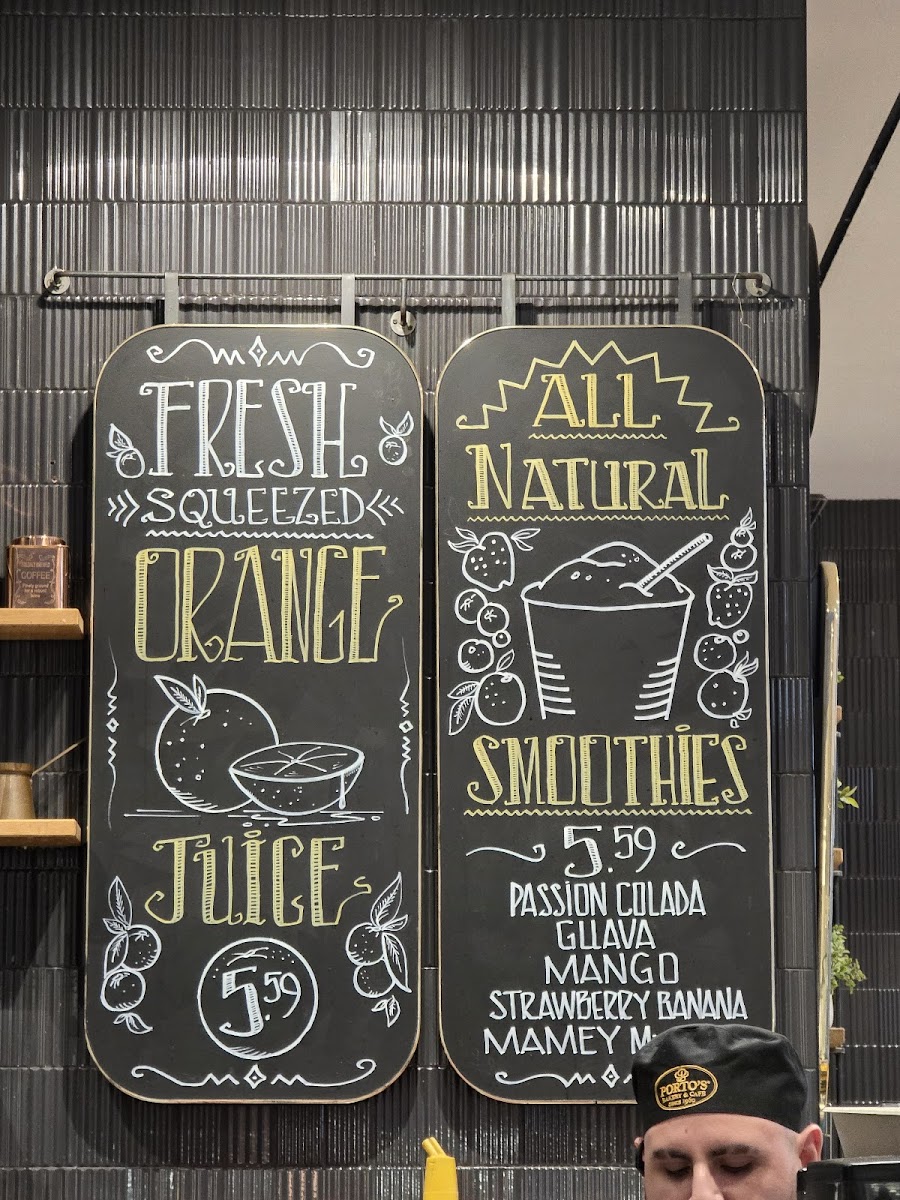 FRESH
SQUEEZED
ORANGE
JUICE
5.59
ALL
NATURAL
SMOOTHIES
5.59
PASSION COLADA
GUAVA
MANGO
STRAWBERRY BANANA
MAMEY
COFFEE
PORTO'S
BAKERY & CAFE
SINCE 1960